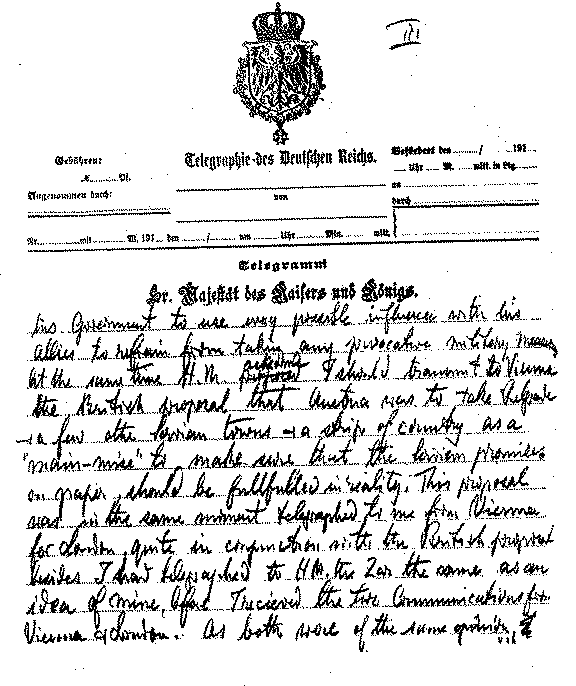 III
Gebühren:
Telegraphie des Deutschen Reichs.
Befördert den / 191
M. Pf.
Uhr M. mitt. in Ltg.
Angenommen durch:
von
an
durch
Nr. mit W. 191 den / um Uhr Min. mitt.
Telegramm
Sr. Majestät des Kaisers und Königs.
his Government to use every possible influence with his
allies to refrain from taking any provocative military
At the same time H.M. asked me I should transmit to Vienna
the British proposal that Austria was to take Belgrade
+ a few other Servian towns + a strip of country as a
"main-mise" to make sure that the Servian promises
on paper should be fullfulled in reality. This proposal
was in the same moment telegraphed to me from Vienna
for London, quite in conjunction with the British proposal
besides I had telegraphed to H.M. the Zar the same as an
idea of mine, before I recieved the two Communications from
Vienna & London. As both were of the same opinion,